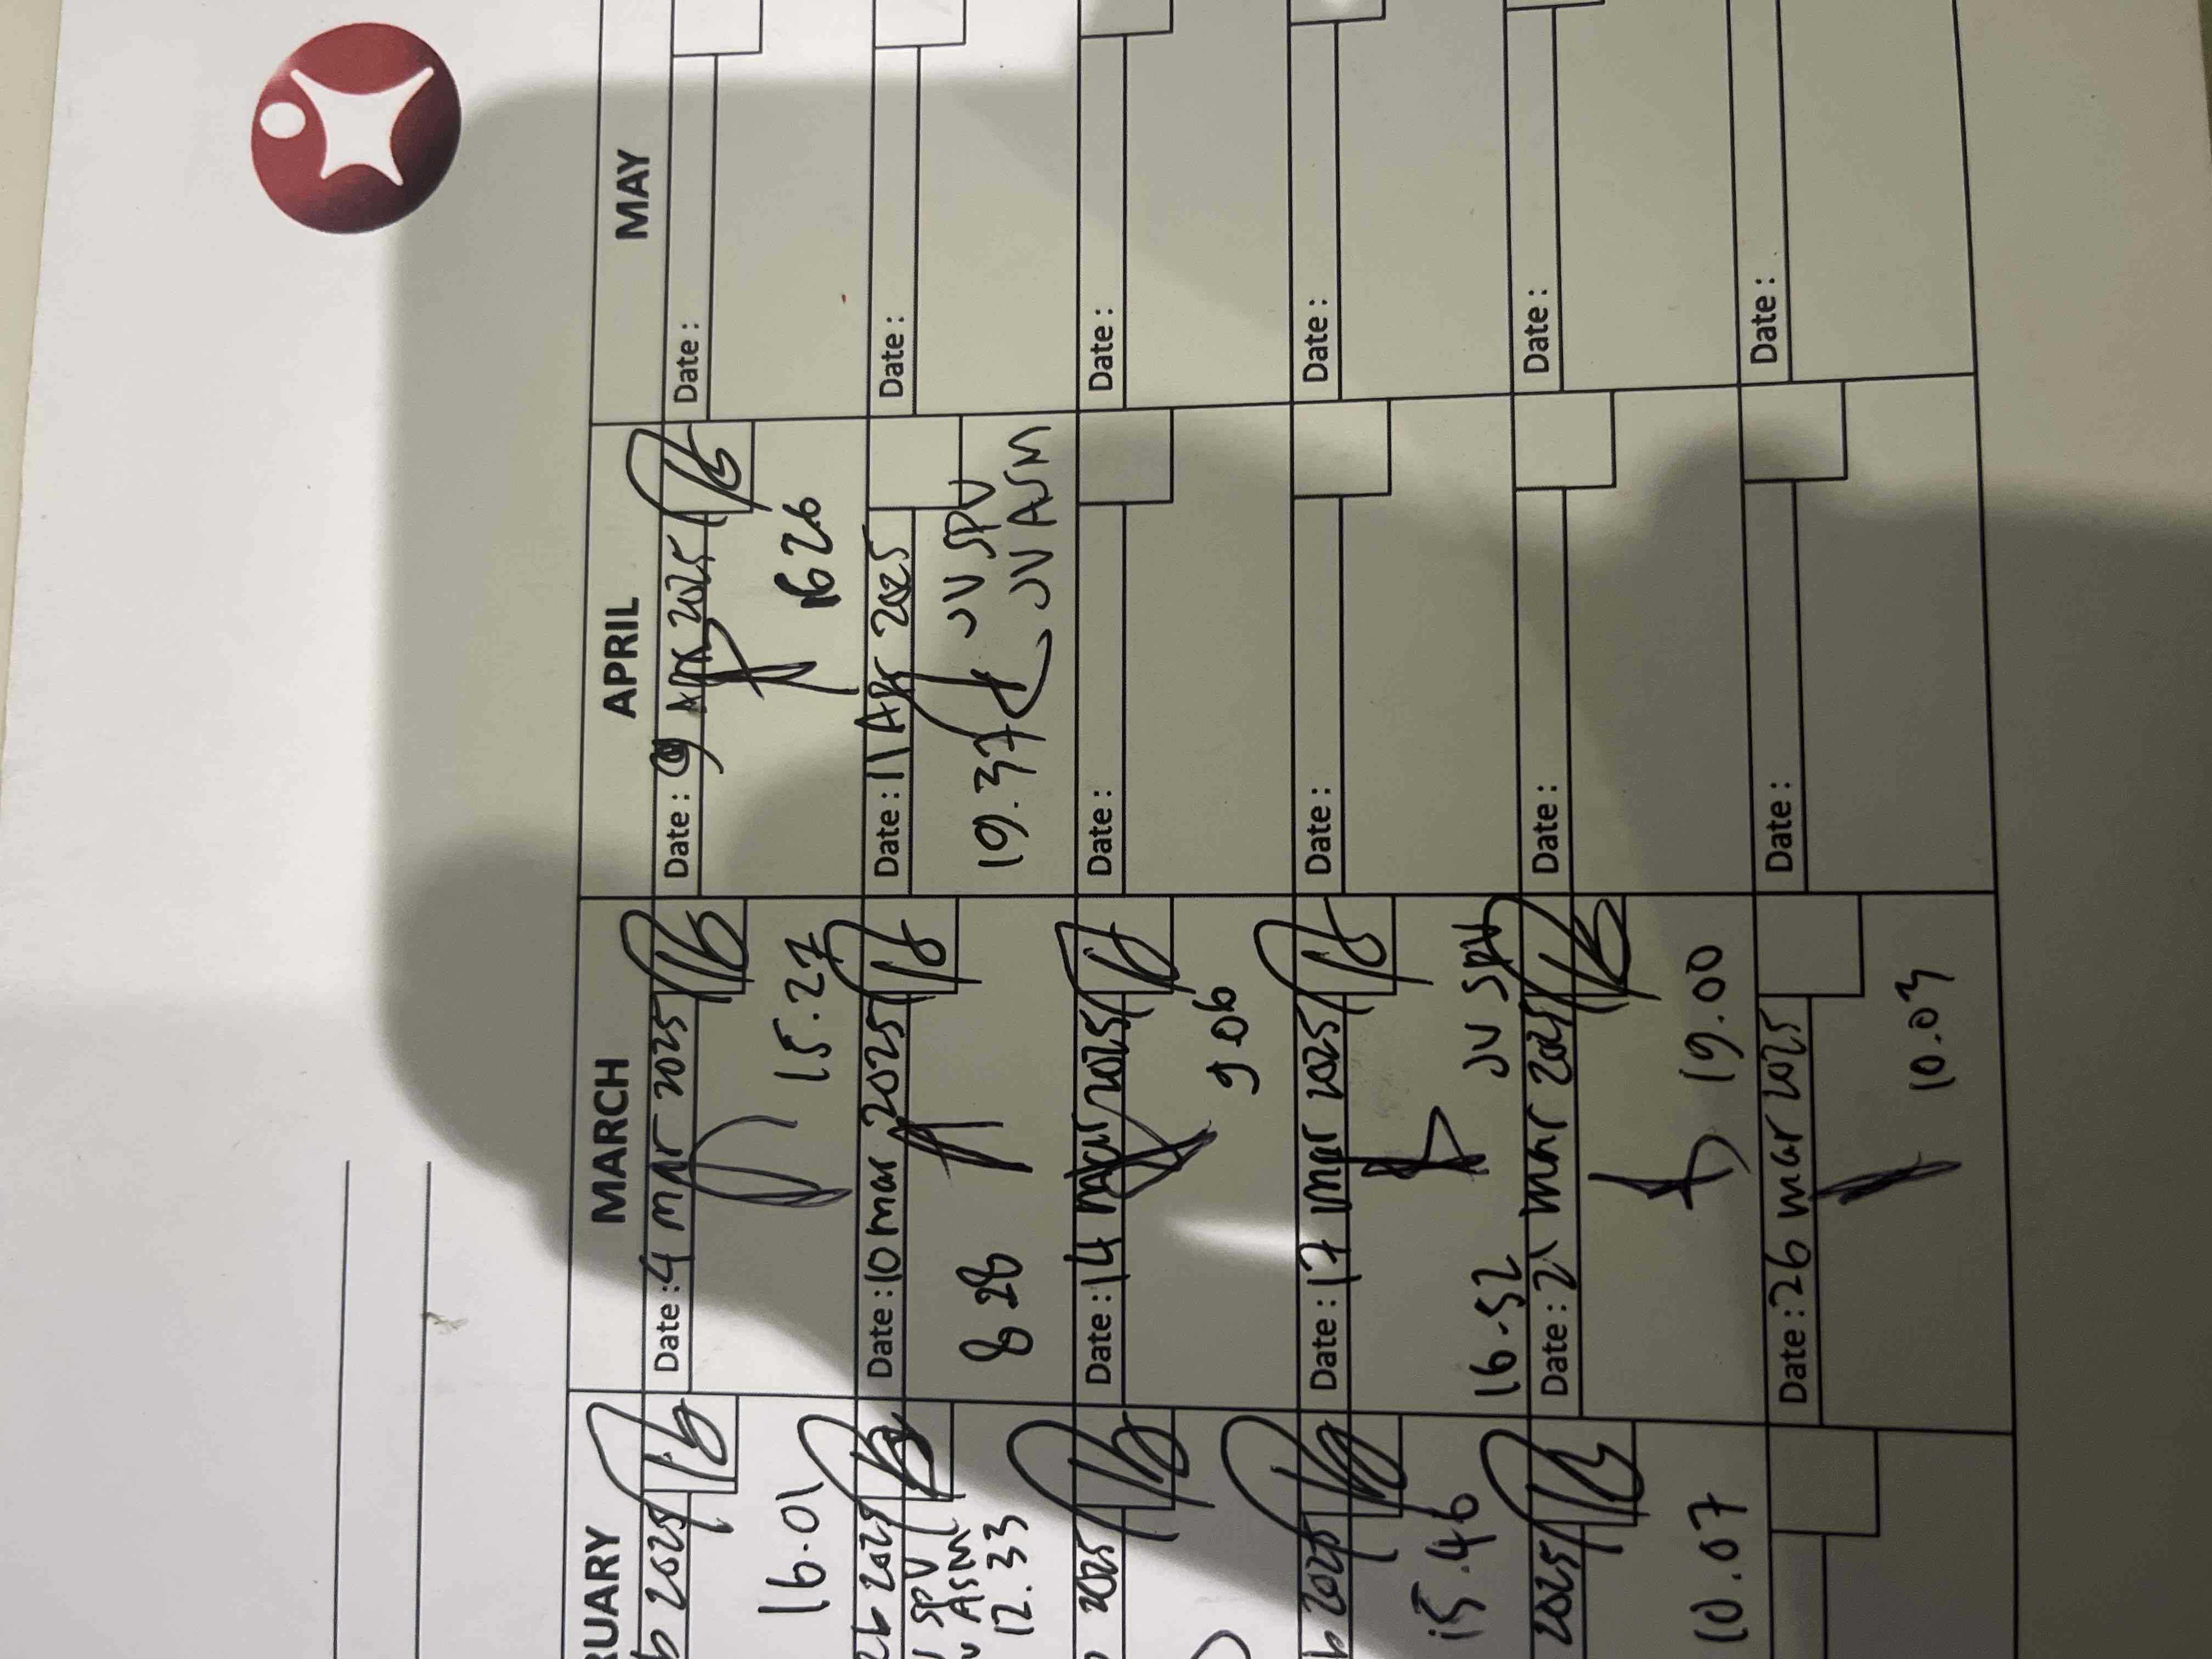 RUARY
MARCH
APRIL
MAY
b 2025
16.01
Date : 4 mar 2025
15.27
Date : 9 Apr 2025
16 26
Date :
eb 2025
SPV
ASM
12.33
Date : 10 mar 2025
8 28
Date : 11 Apr 2025
19.37
JV SPV
JV ASM
Date :
2025
Date : 14 mar 2025
9 06
Date :
Date :
b 2025
15.46
Date : 17 mar 2025
16.52
JV SPV
Date :
Date :
2025
10.07
Date : 21 mar 2025
19.00
Date :
Date :
Date : 26 mar 2025
10.03
Date :
Date :